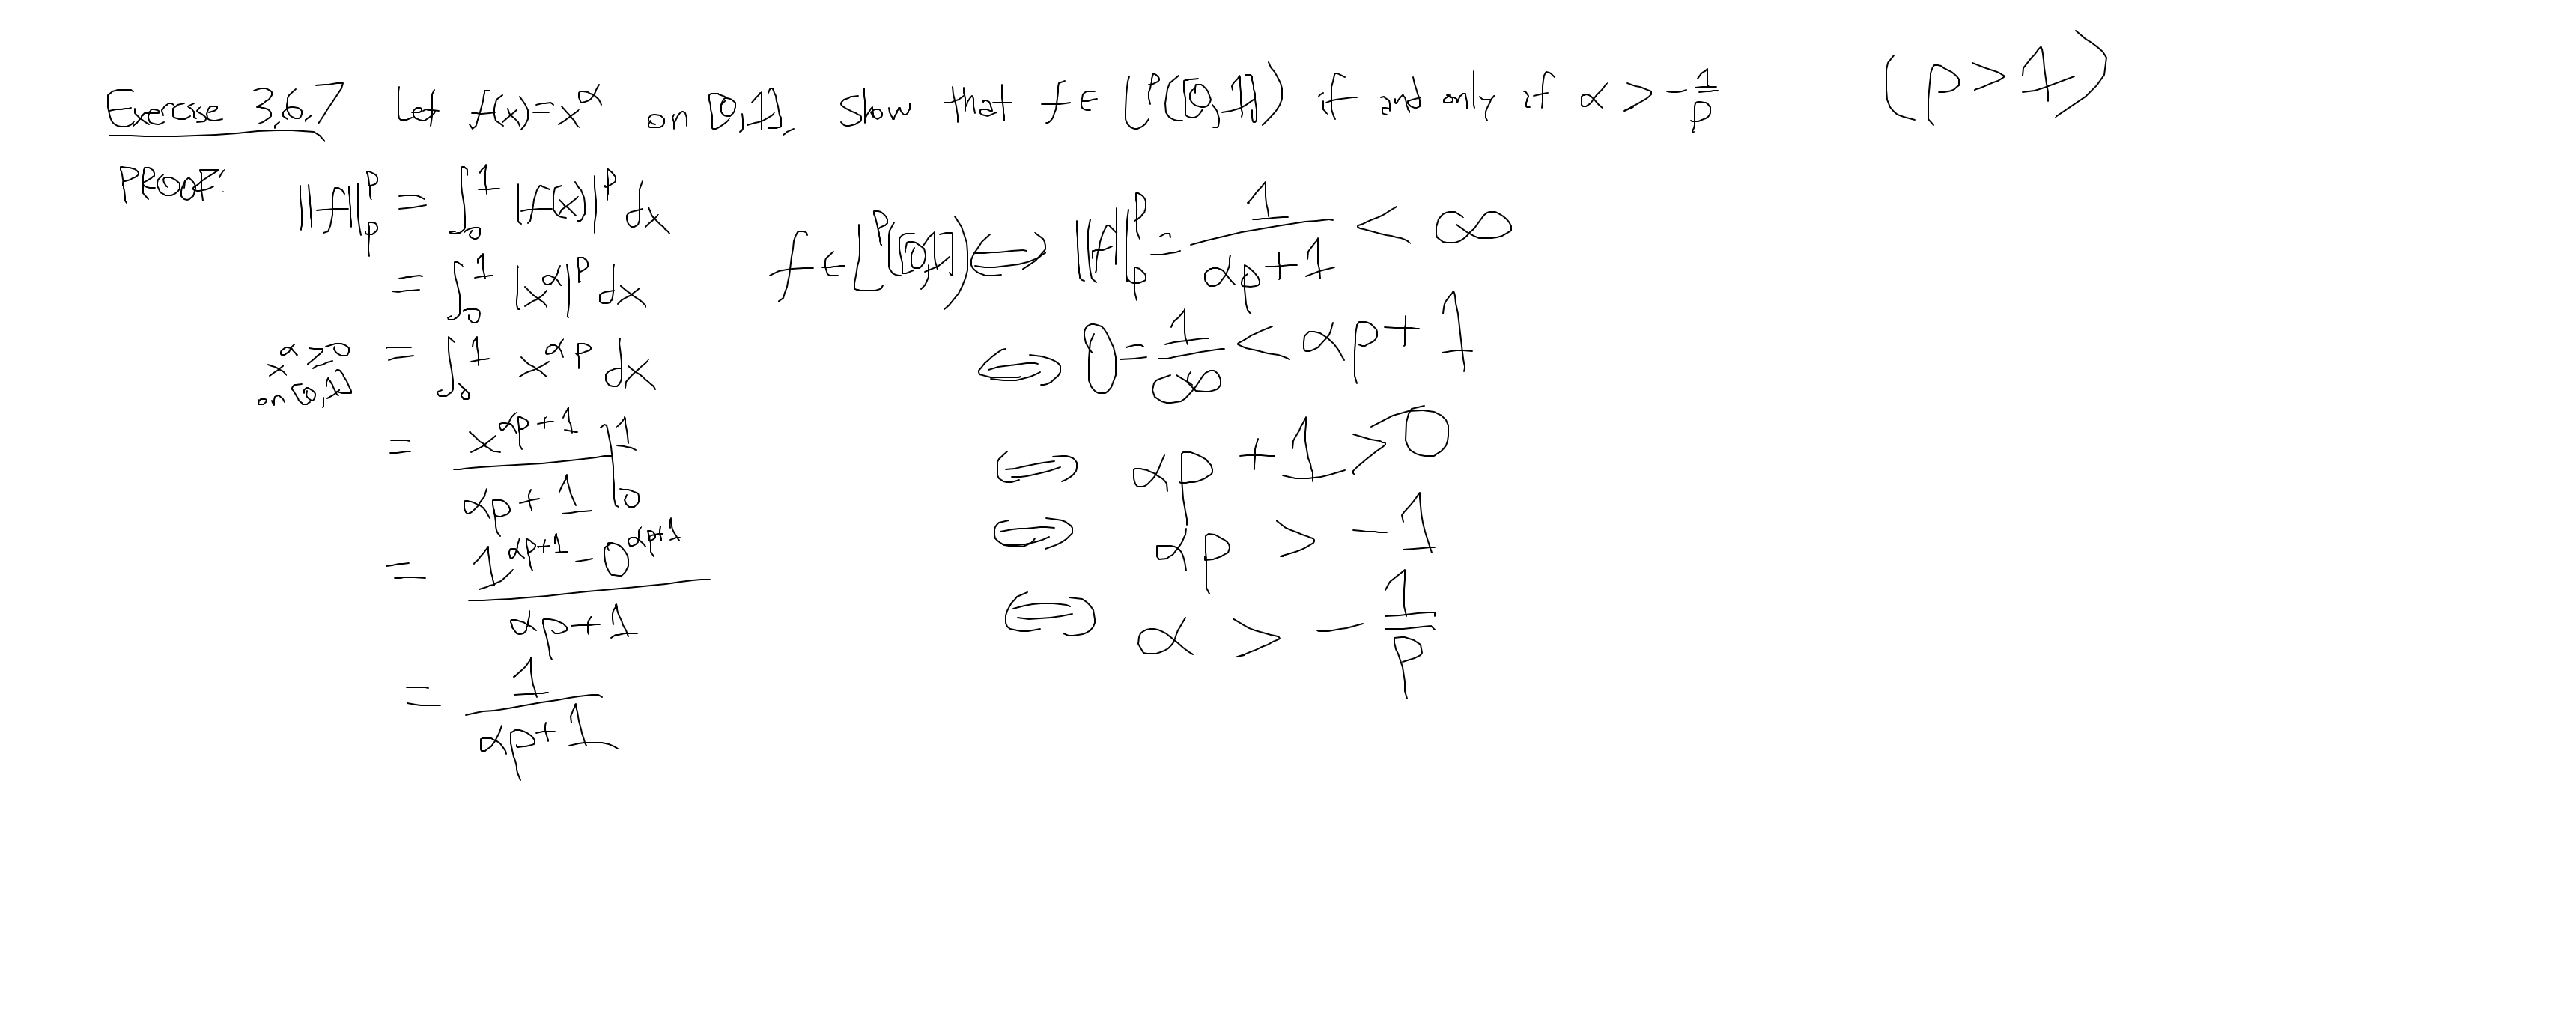 Exercise 3.6.7 Let f(x)=x^α on [0,1]. Show that f∈L^p([0,1]) if and only if α > -1/p (p>1)
PROOF:
||f||_p^p = ∫_0^1 |f(x)|^p dx
= ∫_0^1 |x^α|^p dx
x^α ≥ 0 on [0,1] = ∫_0^1 x^{αp} dx
= x^{αp+1}/(αp+1) |_0^1
= (1^{αp+1} - 0^{αp+1})/(αp+1)
= 1/(αp+1)
f∈L^p([0,1]) ⟺ ||f||_p^p = 1/(αp+1) < ∞
⟺ 0 = 1/∞ < αp+1
⟺ αp+1 > 0
⟺ αp > -1
⟺ α > -1/p